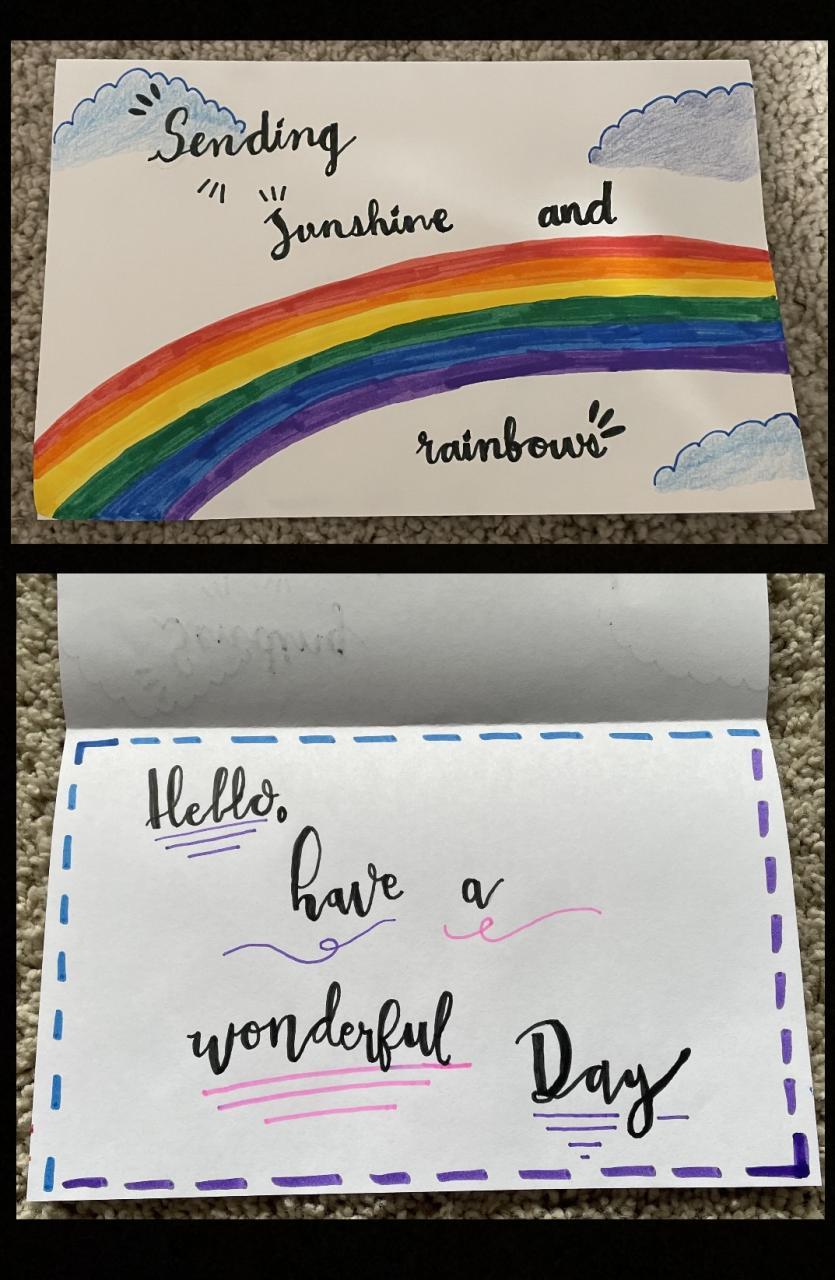 Sending
Sunshine and
rainbows
Hello.
have a
wonderful
Day